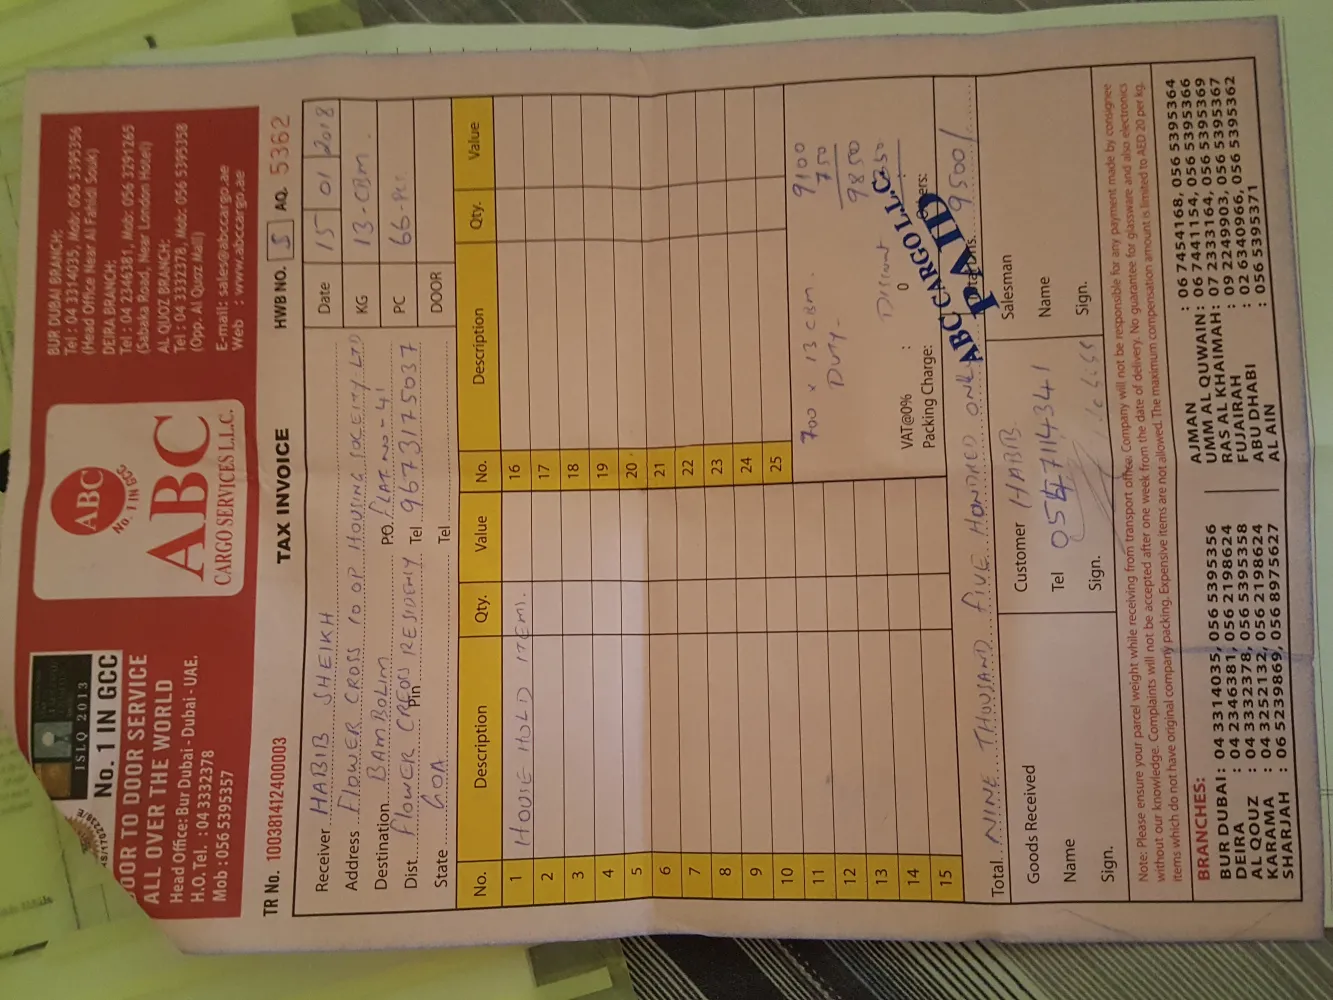 ISLQ 2013
No. 1 IN GCC
DOOR TO DOOR SERVICE
ALL OVER THE WORLD
Head Office: Bur Dubai - Dubai - UAE.
H.O. Tel. : 04 3332378
Mob : 056 5395357
ABC
No. 1 IN GCC
ABC
CARGO SERVICES L.L.C.
BUR DUBAI BRANCH:
Tel : 04 3314035, Mob: 056 5395356
(Head Office Near Al Fahidi Souk)
DEIRA BRANCH:
Tel : 04 2346381, Mob: 056 3291265
(Sabaka Road, Near London Hotel)
AL QUOZ BRANCH:
Tel : 04 3332378, Mob: 056 5395358
(Opp. Al Quoz Mall)
E-mail: sales@abccargo.ae
Web : www.abccargo.ae
TR No. 100381412400003 TAX INVOICE HWB NO. S AQ. 5362
Receiver HABIB SHEIKH Date 15 01 2018
Address FLOWER CROSS CO OP HOUSING SOCEITY LTD KG 13-CBM.
Destination BAMBOLIM P.O. FLAT-NO-41 PC 66-Pcs
Dist. FLOWER CREOSS RESIDENCY Pin Tel 9673175037 DOOR
State GOA Tel
No. Description Qty. Value No. Description Qty. Value
1 HOUSE HOLD ITEMS. 16
2 17
3 18
4 19
5 20
6 21
7 22
8 23
9 24
10 25
11 700 x 13 CBM. 9100
12 DUTY- 750
13 9850
14 VAT@0% : 0 Discount 350
15 Packing Charge: Others:
ABC CARGO L.L.C.
PAID
Total NINE THOUSAND FIVE HUNDRED ONLY 9500/
Goods Received Customer HABIB Salesman
Name Tel 0547114341 Name
Sign. Sign. Sign.
Note: Please ensure your parcel weight while receiving from transport office. Company will not be responsible for any payment made by consignee
without our knowledge. Complaints will not be accepted after one week from the date of delivery. No guarantee for glassware and also electronics
items which do not have original company packing. Expensive items are not allowed. The maximum compensation amount is limited to AED 20 per kg.
BRANCHES:
BUR DUBAI : 04 3314035, 056 5395356
DEIRA : 04 2346381, 056 2198624
AL QOUZ : 04 3332378, 056 5395358
KARAMA : 04 3252132, 056 2198624
SHARJAH : 06 5239869, 056 8975627
AJMAN : 06 7454168, 056 5395364
UMM AL QUWAIN : 06 7441154, 056 5395366
RAS AL KHAIMAH : 07 2333164, 056 5395369
FUJAIRAH : 09 2249903, 056 5395367
ABU DHABI : 02 6340966, 056 5395362
AL AIN : 056 5395371